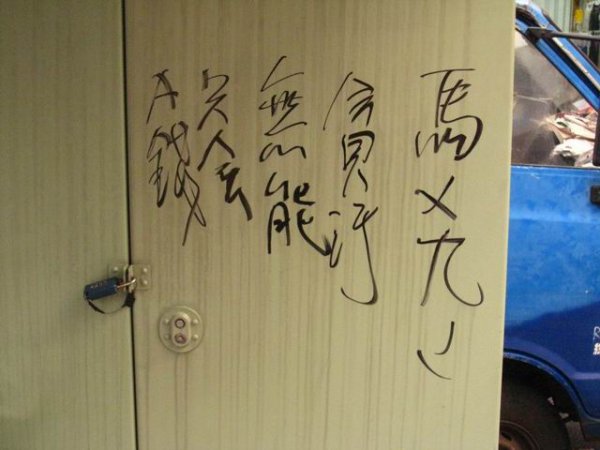 馬乂九
貪污
無能
只會
A錢